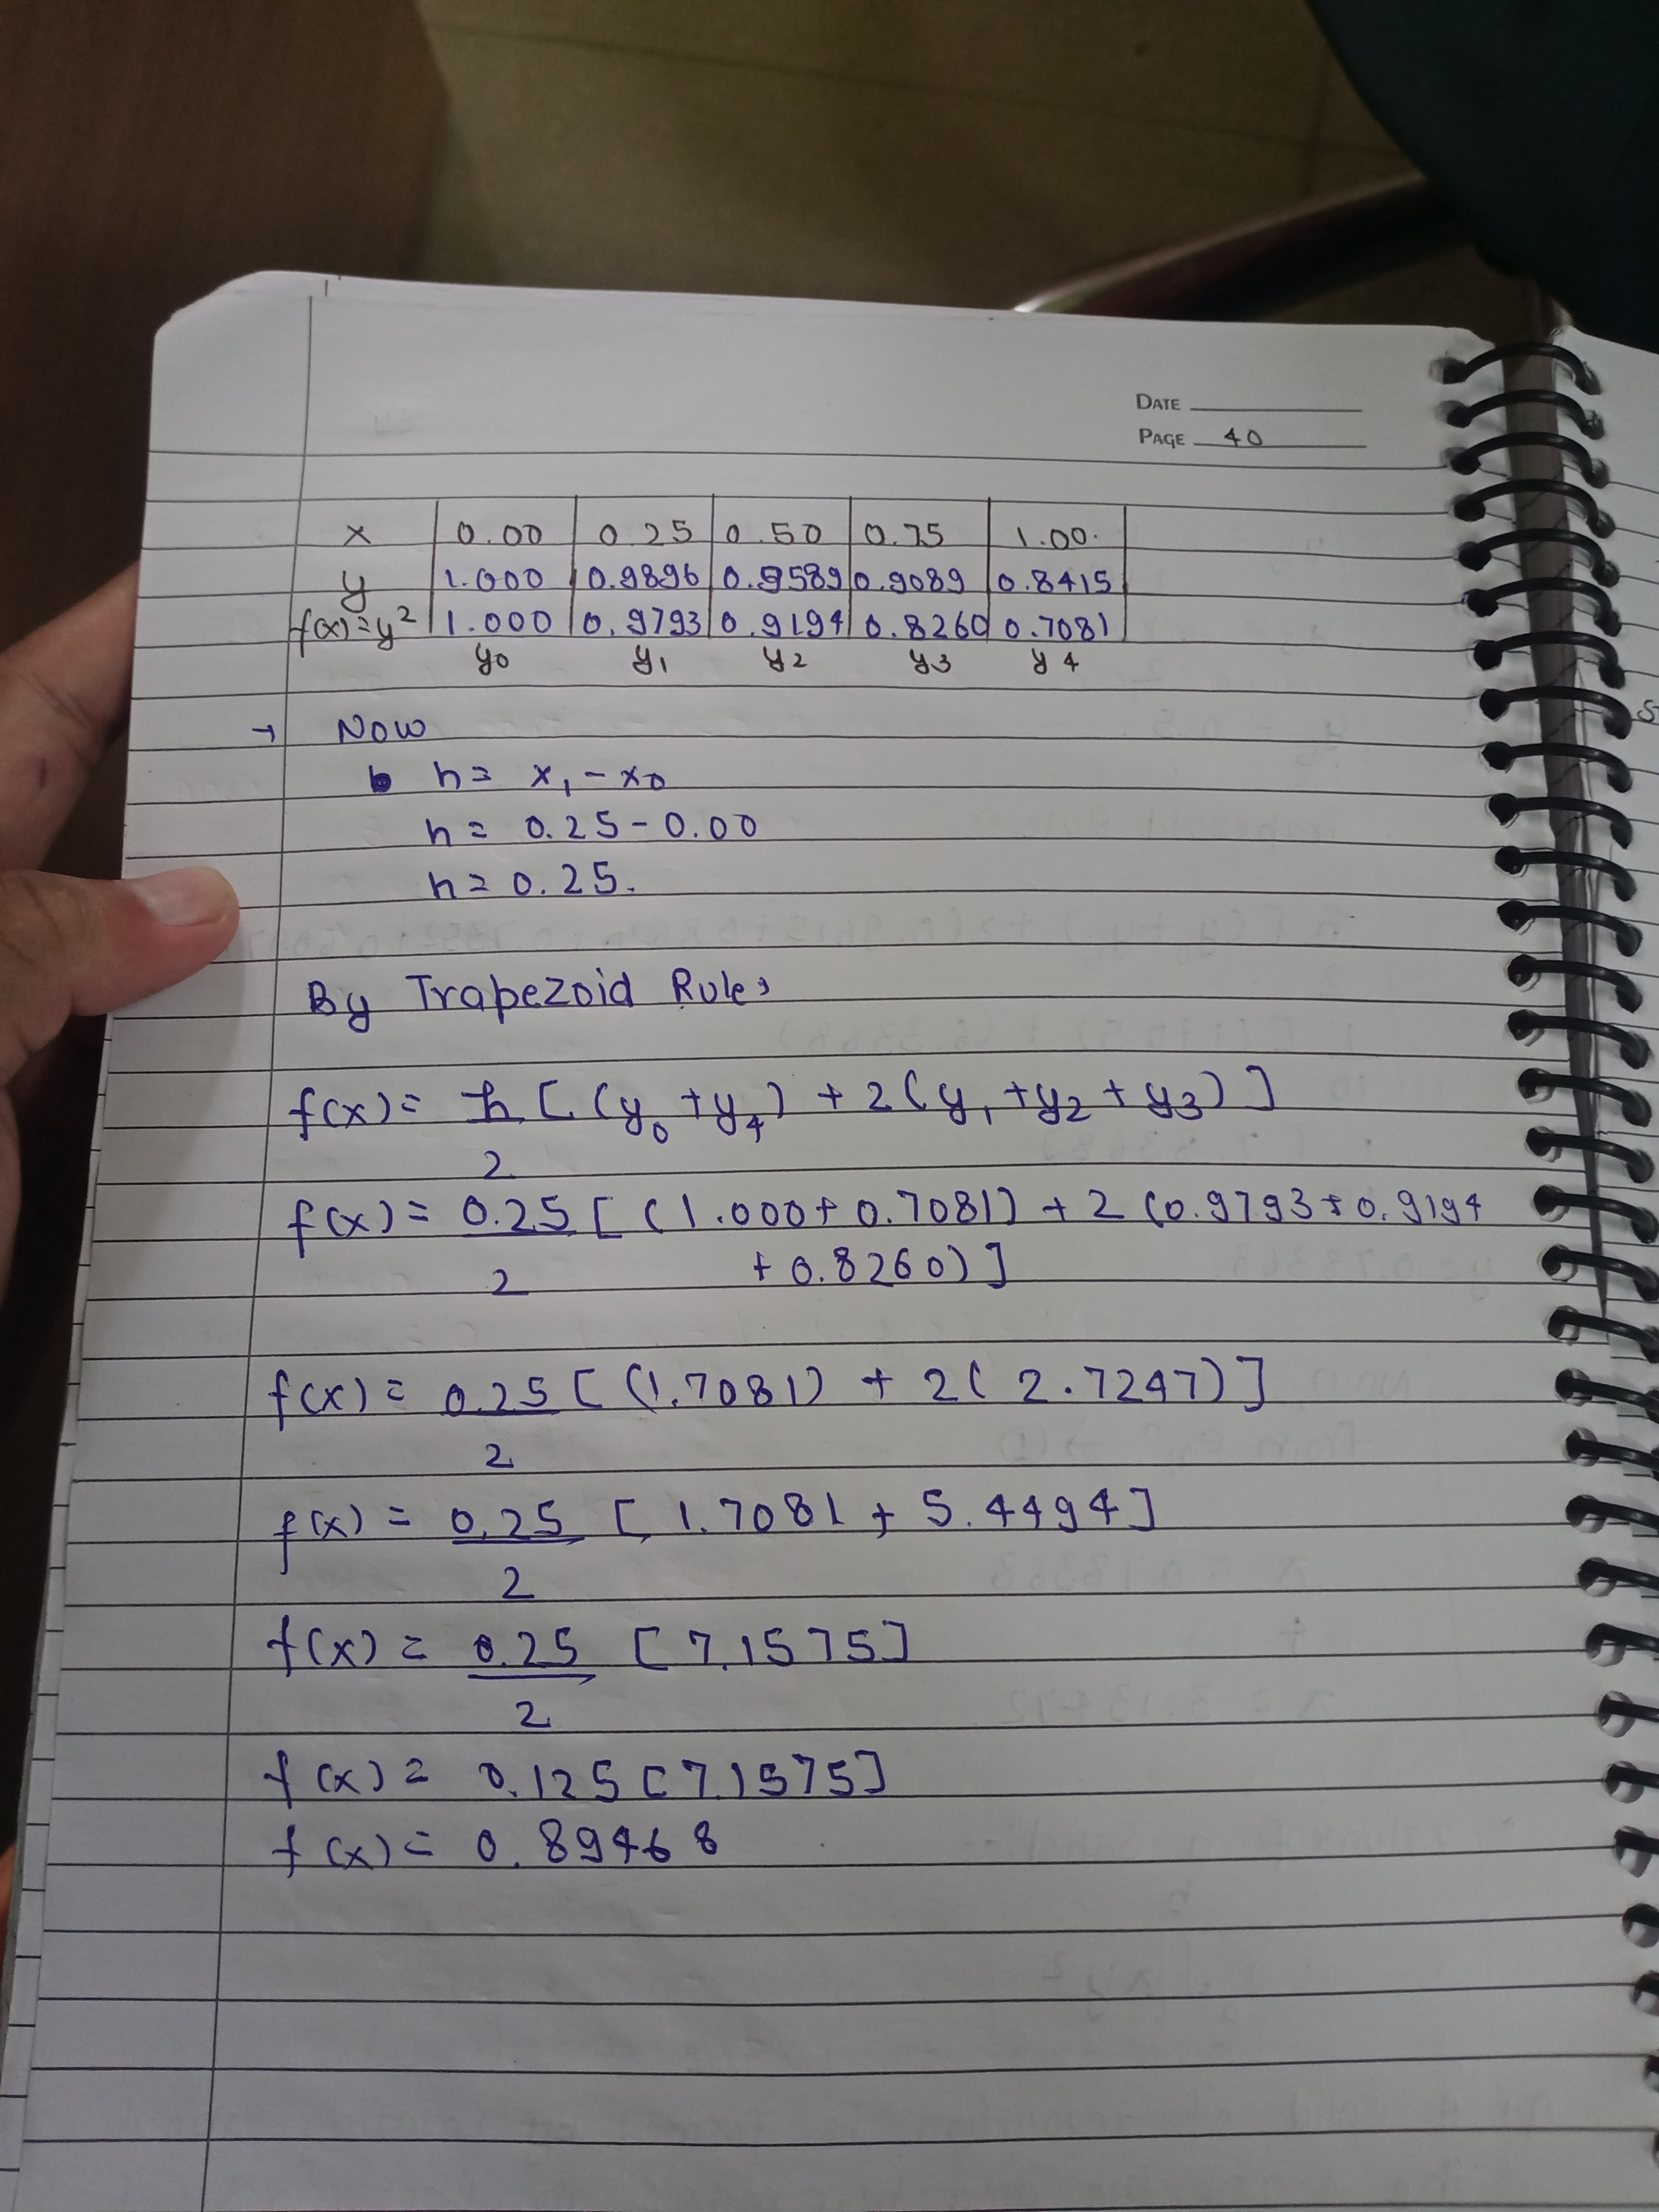 DATE
PAGE 40
x 0.00 0.25 0.50 0.75 1.00.
y 1.000 0.9896 0.9589 0.9089 0.8415
f(x)=y² 1.000 0.9793 0.9194 0.8260 0.7081
y0 y1 y2 y3 y4
→ Now
h = x1 - x0
h = 0.25 - 0.00
h = 0.25.
By Trapezoid Rule,
f(x) = h/2 [(y0 + y4) + 2(y1 + y2 + y3)]
f(x) = 0.25/2 [(1.000 + 0.7081) + 2(0.9793 + 0.9194
+ 0.8260)]
f(x) = 0.25/2 [(1.7081) + 2(2.7247)]
f(x) = 0.25/2 [1.7081 + 5.4494]
f(x) = 0.25/2 [7.1575]
f(x) = 0.125 [7.1575]
f(x) = 0.89468